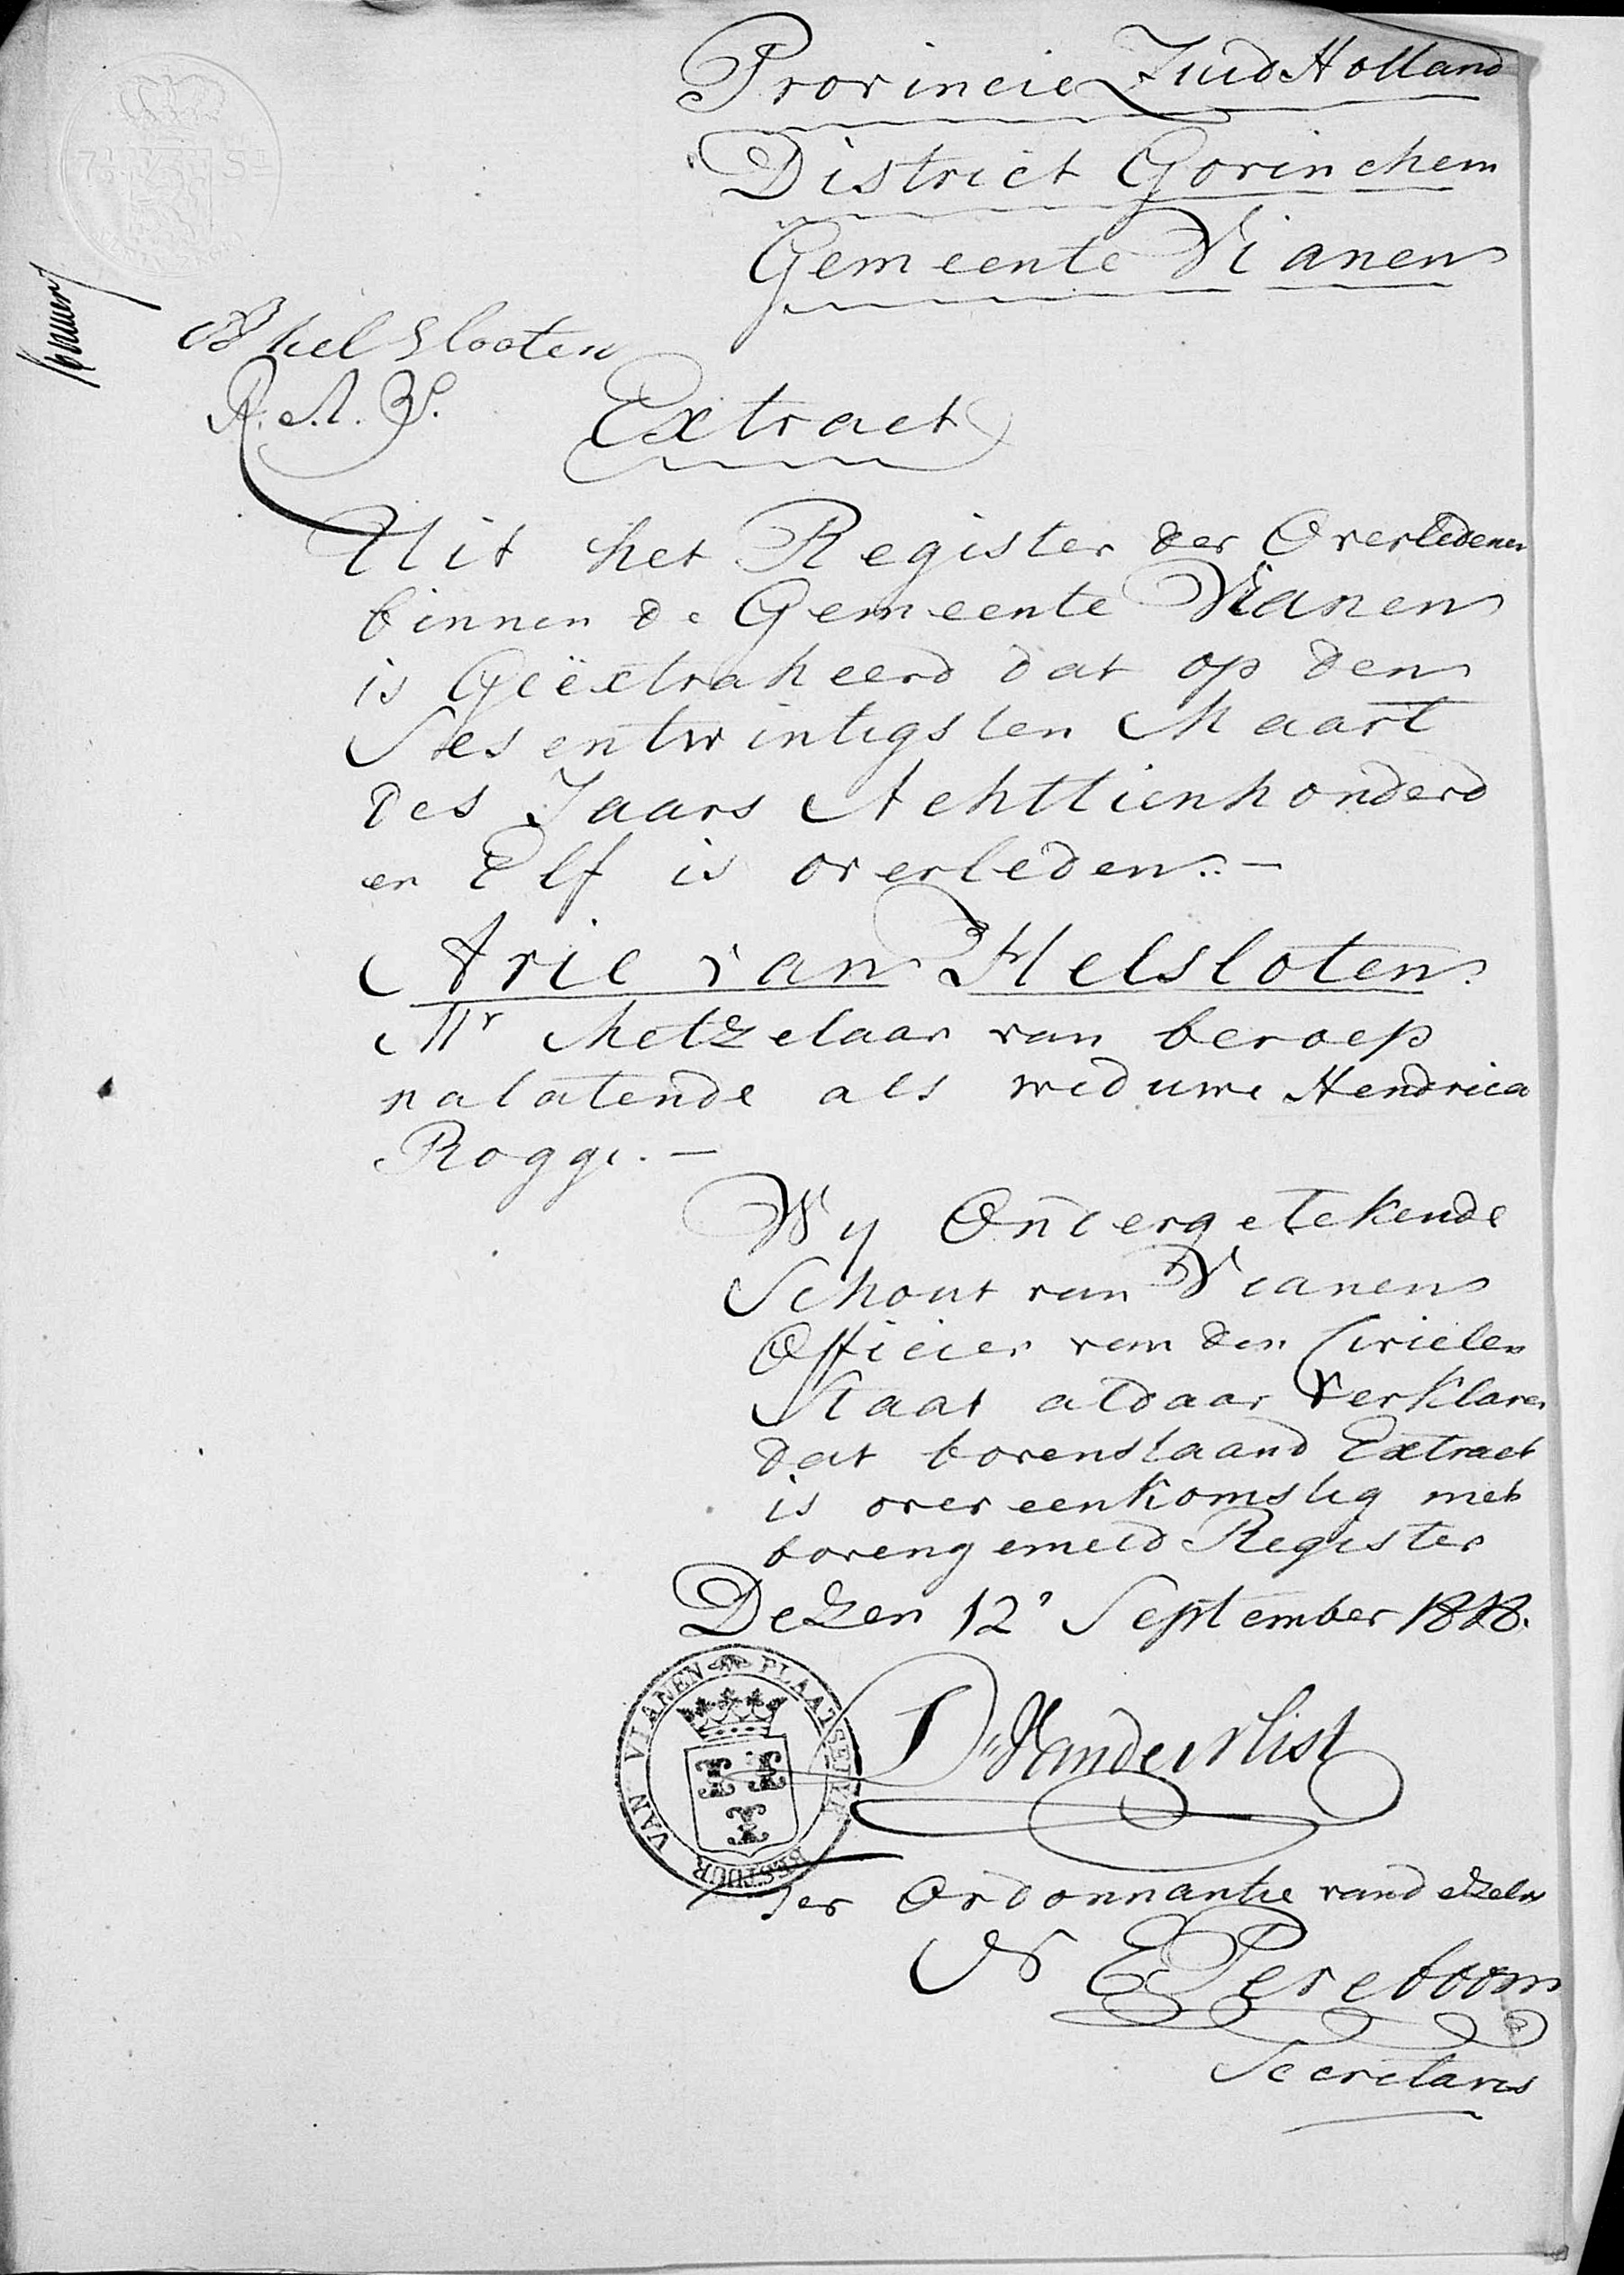 Provincie Zuid Holland
District Gorinchem
Gemeente Vianen
helslooten
Extract
Uit het Register der Overledenen
binnen de Gemeente Vianen
is Geëxtraheerd dat op den
Sesentwintigsten Maart
des Jaars Achttienhonderd
en Elf is overleden.-
Arie van Helsloten
Mr Metzelaar van beroep
nalatende als weduwe Hendrica
Rogge.-
Wy Ondergetekende
Schout van Vianen
Officier van den Civielen
Staat aldaar Verklaren
dat bovenstaand Extract
is overeenkomstig met
bovengemeld Register
Dezen 12e September 1818.
VAN VIANEN PLAATSELYK BESTUUR
D Vandervlist
Ter Ordonnantie vandezelve
E Pereboom
Secretaris